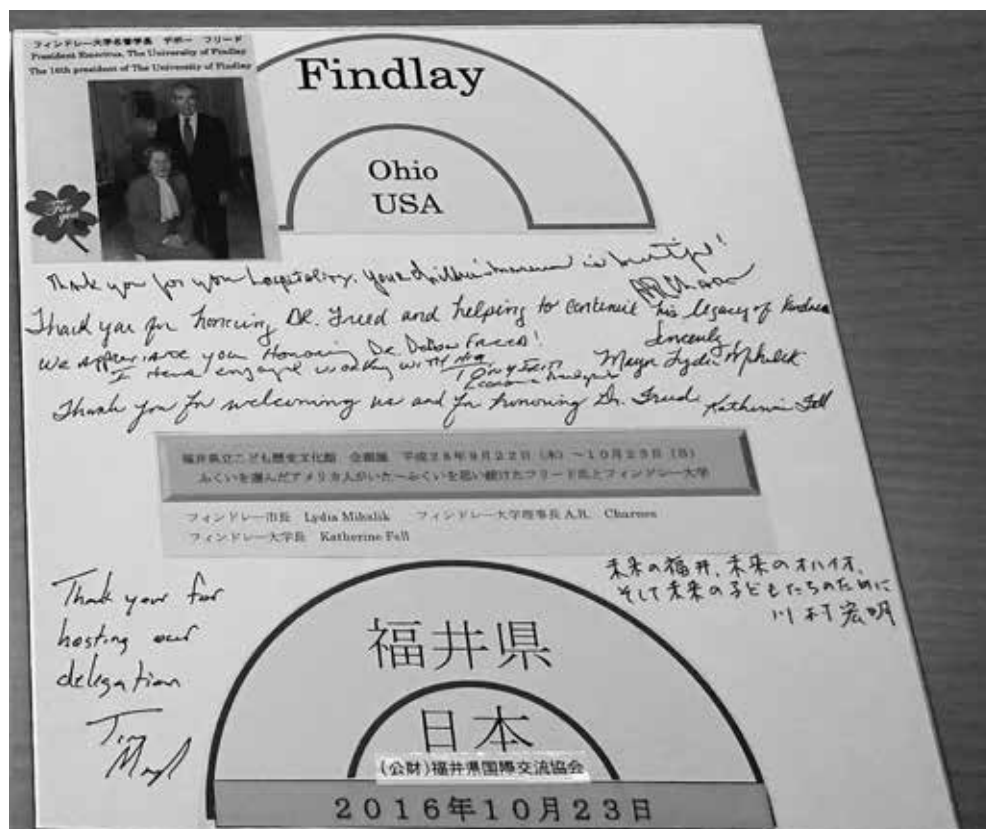 フィンドレー大学名誉学長 デボー フリード
President Emeritus, The University of Findlay
The 16th president of The University of Findlay
For you
Findlay
Ohio
USA
Thank you for your hospitality. Your children's museum is beautiful!
Thank you for honoring Dr. Freed and helping to continue his legacy of kindness
Sincerely
We appreciate your Honoring Dr. DeBow Freed!
Mayor Lydia Mihalik
I have enjoyed working with
Thank you for welcoming us and for honoring Dr. Freed. Katherine Fell
福井県立こども歴史文化館 企画展 平成28年9月22日(木)~10月23日(日)
ふくいを選んだアメリカ人がいた~ふくいを思い続けたフリード氏とフィンドレー大学
フィンドレー市長 Lydia Mihalik フィンドレー大学理事長 A.R. Charnes
フィンドレー大学長 Katherine Fell
Thank you for
hosting our
delegation
Tim
未来の福井、未来のオハイオ、
そして未来の子どもたちのために
川村宏明
福井県
日本
(公財)福井県国際交流協会
2016年10月23日